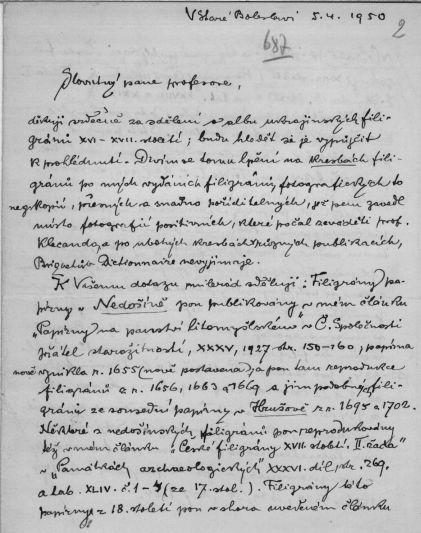 V Staré Boleslavi 5.4. 1950
2
687
Slovutný pane profesore,
děkuji vděčně za sdělení o albu ukrajinských fili-
gránů XVI-XVII. století; budu hledět si je vypůjčit
k prohlédnutí. Divím se tomu lpění na kresbách fili-
gránů po mých vydáních filigránů, fotografických to
negkopií, přesných a snadno pořiditelných, jež jsem zavedl
místo fotografií positivních, které počal zaváděti prof.
Klecanda, a po ubohých kresbách různých publikacích,
Briquetův Dictionnaire nevyjímaje.
K Vašemu dotazu milerád sděluji: Filigrány pa-
pírny v Nedošíně jsou publikovány v mém článku
"Papírny na panství litomyšlském" v Č. Společnosti
přátel starožitností, XXXV, 1927 str. 150-160, papírna
nově vznikla r. 1655 (nově postavena), a jsou tam reprodukce
filigránů z r. 1656, 1663 a 1669 a jim podobných fili-
gránů ze sousední papírny v Hrušové z r. 1695 a 1702.
Některé z nedošínských filigránů jsou reprodukovány
též v mém článku "České filigrány XVII. století. II. řada"
v "Památkách archaeologických" XXXVI. díl, str. 269.
a tab. XLIV. č. 1-7 (ze 17. stol.). Filigrány této
papírny z 18. století jsou v shora uvedeném článku